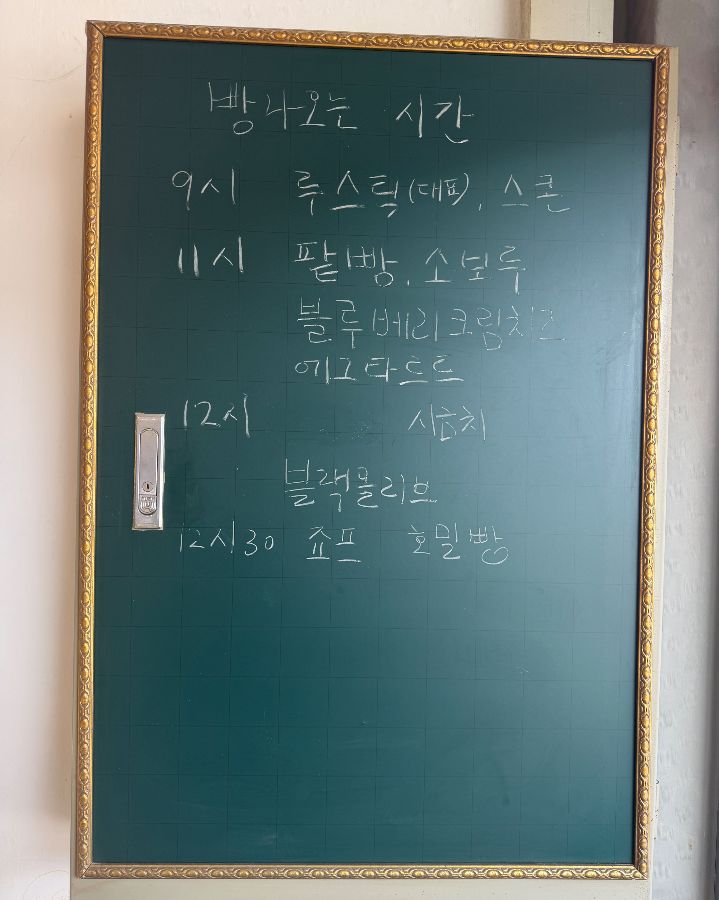 빵나오는 시간
9시 루스틱(대표), 스콘
11시 팥빵, 소보루
블루베리크림치즈
에그타르트
12시 시금치
블랙올리브
12시30 죠프 호밀빵